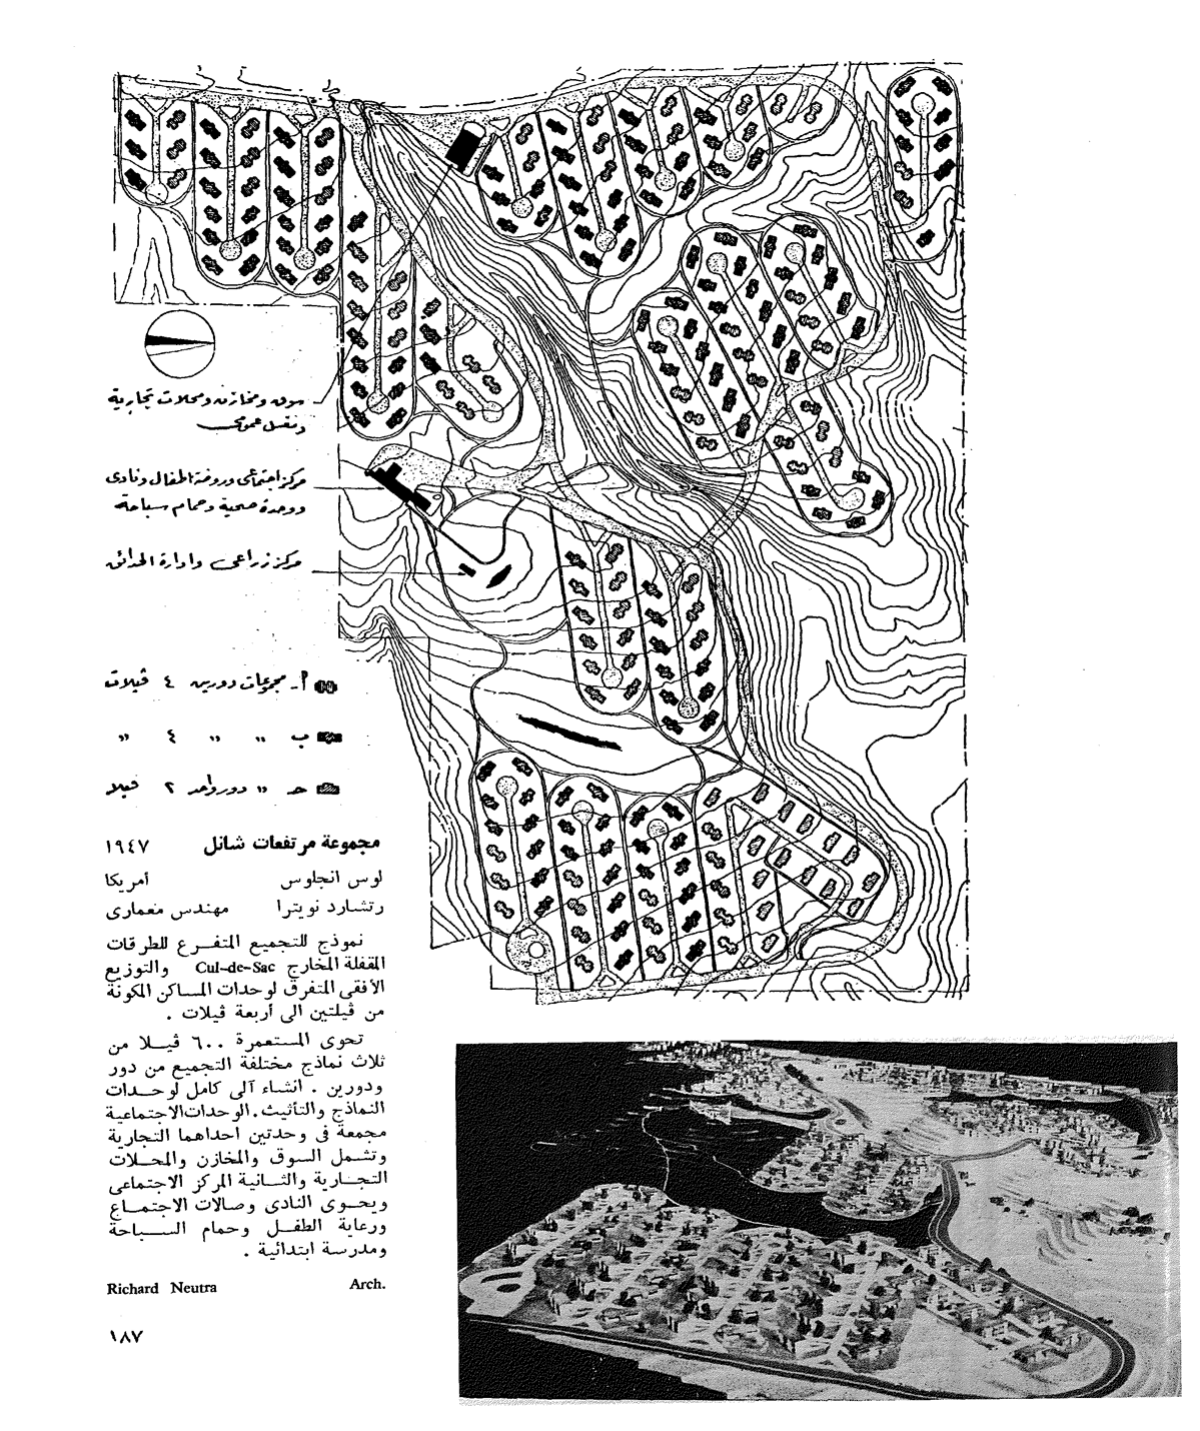 سوق ومخازن ومحلات تجارية
ونقل عمومى
مركز اجتماعى وروضة اطفال ونادى
ووحدة صحية وحمام سباحة
مركز زراعى وادارة الحدائق
أ - مجموعات دورين ٤ ڤيلات
ب " " ٤ "
حـ " دور واحد ٢ ڤيلا
مجموعة مرتفعات شانل ١٩٤٧
لوس انجلوس أمريكا
رتشارد نويترا مهندس معمارى
نموذج للتجميع المتفـرع للطرقات
المقفلة المخارج Cul-de-Sac والتوزيع
الأفقى المتفرق لوحدات المساكن المكونة
من ڤيلتين الى أربعة ڤيلات .
تحوى المستعمرة ٦٠٠ ڤيـلا من
ثلاث نماذج مختلفة التجميع من دور
ودورين . انشاء آلى كامل لوحـدات
النماذج والتأثيث . الوحدات الاجتماعية
مجمعة فى وحدتين احداهما التجارية
وتشـمل السوق والمخازن والمحـلات
التجـارية والثـانية المركز الاجتماعى
ويحـوى النادى وصالات الاجتمـاع
ورعاية الطفـل وحمام السـباحة
ومدرسة ابتدائية .
Richard Neutra Arch.
١٨٧